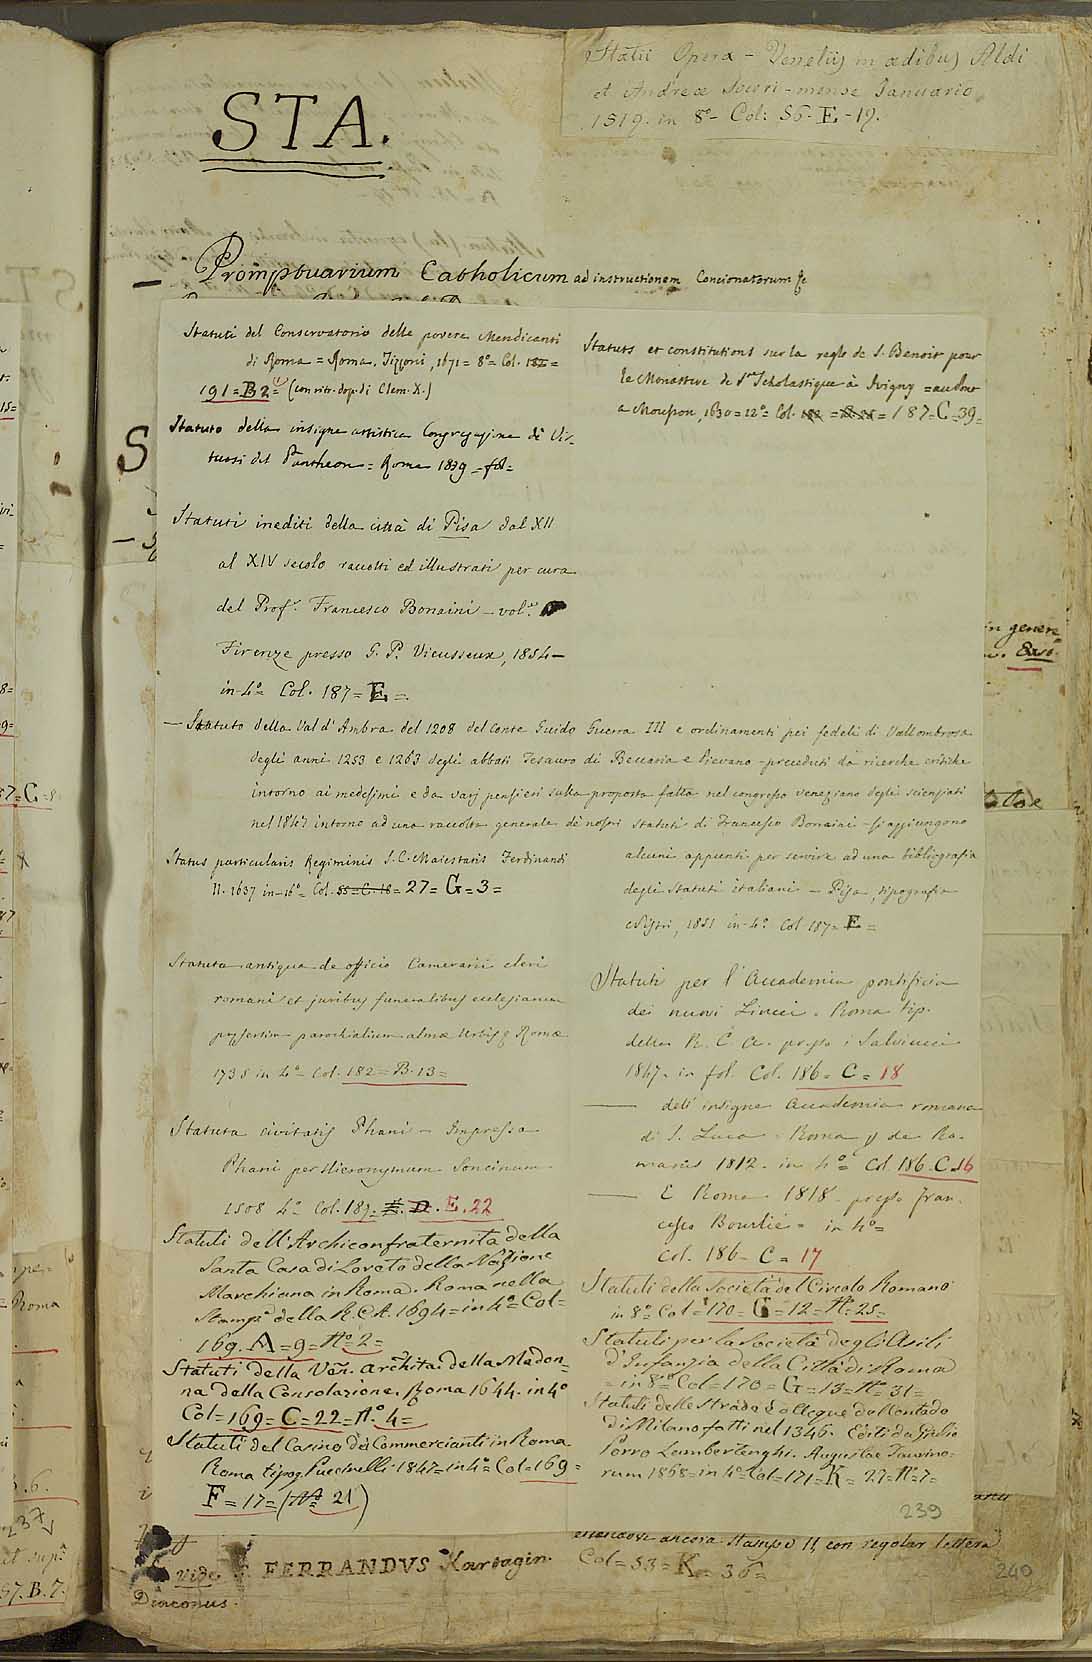 STA.
Statii Opera - Venetiis in ædibus Aldi
et Andreæ Soceri - mense Ianuario
1519. in 8º - Col: 56 - E - 19.
— Promptuarium Catholicum ad instructionem Concionatorum
Statuti del Conservatorio delle povere Mendicanti
di Roma = Roma, Tizzoni, 1671 = 8º = Col. 182 =
191 = B 2 = (con ritr. dop. di Clem. X.)
Statuto della insigne artistica Congregazione di Vir-
tuosi del Pantheon = Roma 1839 - fol =
Statuti inediti della città di Pisa dal XII
al XIV secolo raccolti ed illustrati per cura
del Prof. Francesco Bonaini - vol.
Firenze presso G. P. Vieusseux, 1854 -
in 4º Col. 187 = E =
— Statuto della Val d'Ambra del 1208 del Conte Guido Guerra III e ordinamenti pei fedeli di Vallombrosa
degli anni 1253 e 1263 degli abbati Tesauro di Beccaria e Pievano - preceduti da ricerche critiche
intorno ai medesimi e da varj pensieri sulla proposta fatta nel congresso veneziano degli scienziati
nel 1847 intorno ad una raccolta generale de nostri statuti di Francesco Bonaini - si aggiungono
alcuni appunti per servire ad una bibliografia
degli statuti italiani - Pisa, tipografia
Nistri, 1851 in 4º Col 187 = E =
Status particularis Regiminis S. C. Maiestatis Ferdinandi
II. 1637 in 16º = Col. 55 = C. 18 = 27 = G = 3 =
Statuta antiqua de officio Camerarii cleri
romani et juribus funeralibus ecclesiarum
præsertim parochialium almæ Urbis Romæ
1738 in 4º Col. 182 = B. 13 =
Statuta civitatis Phani - Impressa
Phani per Hieronymum Soncinum
1508 4º Col. 189 = E. 22
Statuti dell'Archiconfraternita della
Santa Casa di Loreto della Nazione
Marchiana in Roma. Roma nella
Stamp.ª della R. C. A. 1694 = in 4º = Col =
169. A = 9 = Nº 2 =
Statuti della Ven. Archita. della Madon=
na della Consolazione. Roma 1644. in 4º
Col = 169 = C = 22 = Nº 4 =
Statuti del Casino de Commercianti in Roma.
Roma tipog. Puccinelli 1847 = in 4º = Col = 169 =
F = 17 = (Nº 21)
Statuts et constitutions sur la regle de S. Benoit pour
le Monastere de Ste Scholastique à Juvigny = au Pont
a Mousson, 1630 = 12º = Col. 182 = 187 = C = 39 =
Statuti per l'Accademia pontificia
dei nuovi Lincei. Roma tip.
della R. C. A. presso i Salviucci
1847. in fol. Col. 186 = C = 18
— dell' insigne Accademia romana
di S. Luca. Roma de Ro-
manis 1812. in 4º = Col 186. C. 16
— E Roma 1818. presso Fran-
cesco Bourlié = in 4º =
Col. 186 = C = 17
Statuti della Società del Circolo Romano
in 8º = Col = 170 = G = 12 = Nº 25 =
Statuti per la Società degli Asili
d'Infanzia della Città di Roma
= in 8º = Col = 170 = G = 13 = Nº 31 =
Statuti delle Strade ed acque del Contado
di Milano fatti nel 1346. Editi da Giulio
Porro Lambertenghi. Augustae Taurino-
rum 1868 = in 4º = Col = 171 = K = 27 = Nº 7 =
239
ancora Stamps. II, con regolar lettera
Col = 53 = K = 36 =
vide FERRANDVS Kartagin.
Diaconus.
240
in genere